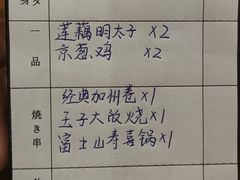 一品
莲藕明太子 ×2
京葱鸡 ×2
焼き串
经典加州卷×1
玉子大阪烧×1
富士山寿喜锅×1